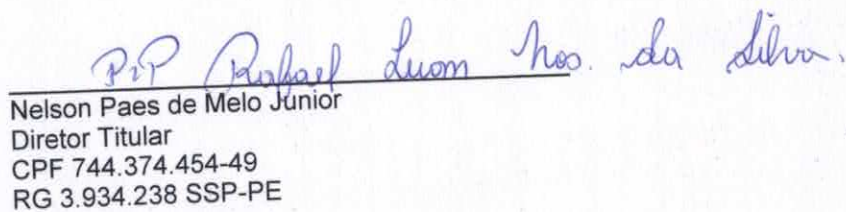 P.P Rafael Luan da Silva.
Nelson Paes de Melo Junior
Diretor Titular
CPF 744.374.454-49
RG 3.934.238 SSP-PE